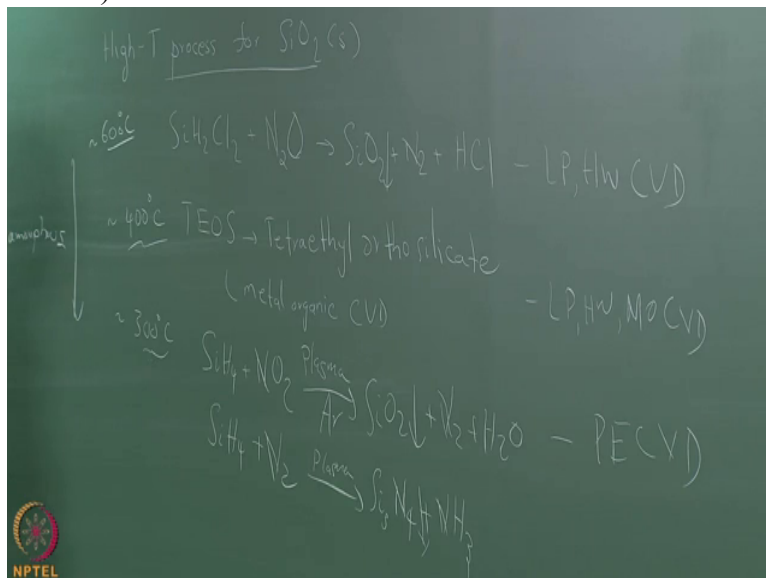 High-T process for SiO₂(s)
~600°C SiH₂Cl₂ + N₂O → SiO₂↓ + N₂ + HCl - LP, HW CVD
amorphous
~400°C TEOS → Tetraethyl orthosilicate
(metal organic CVD - LP, HW, MO CVD
~300°C
SiH₄ + NO₂ Plasma Ar → SiO₂↓ + N₂ + H₂O - PECVD
SiH₄ + N₂ Plasma → Si₃N₄↓ + NH₃
NPTEL